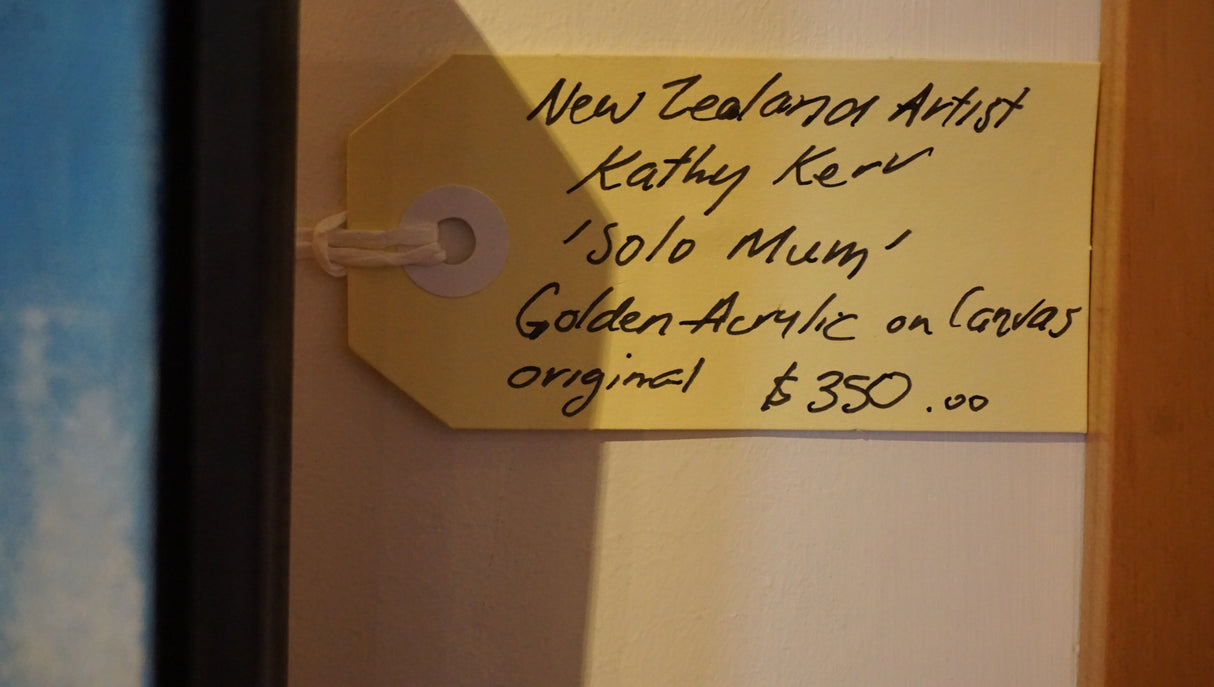 New Zealand Artist
Kathy Kerr
'Solo Mum'
Golden Acrylic on Canvas
original $350.00